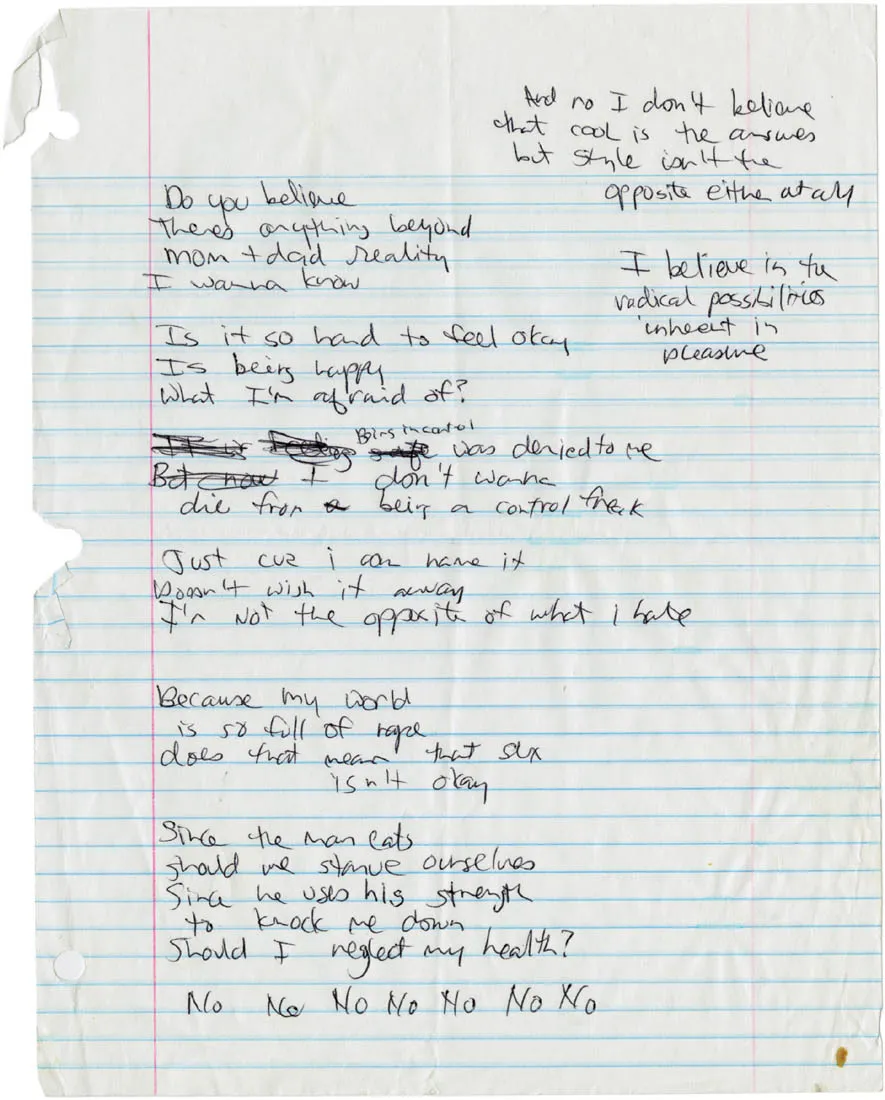 And no I don't believe
that cool is the answer
but style isn't the
opposite either at all
I believe in the
radical possibilities
inherent in
pleasure
Do you believe
theres anything beyond
mom + dad reality
I wanna know
Is it so hard to feel okay
Is being happy
What I'm afraid of?
Being in control
It is Feeling safe was denied to me
But now I don't wanna
die from a being a control freak
Just cuz i can name it
Doesn't wish it away
I'm not the opposite of what i hate
Because my world
is so full of rape
does that mean that sex
isn't okay
Since the man eats
should we starve ourselves
Since he uses his strength
to knock me down
Should I neglect my health?
No No No No No No No